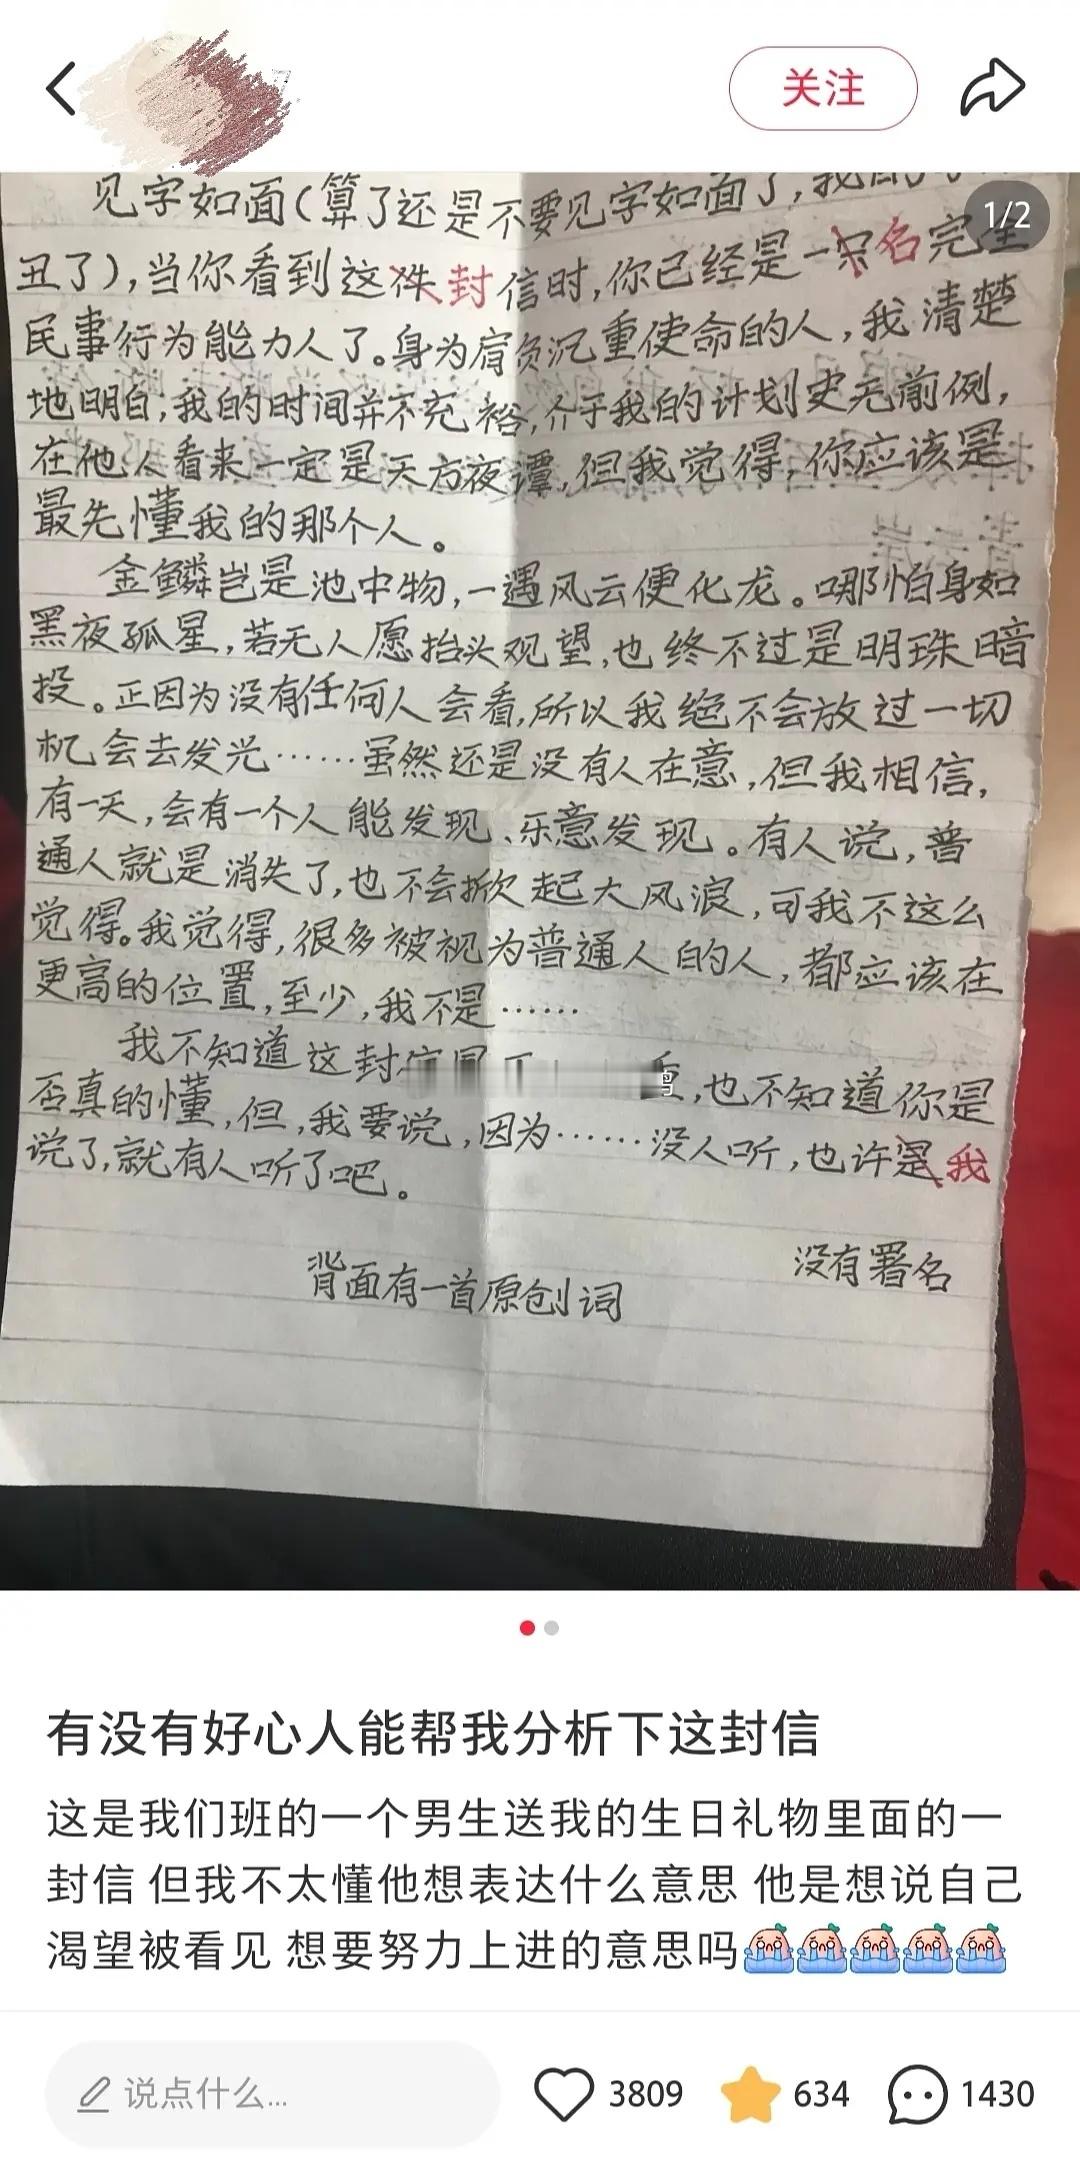 关注
1/2
见字如面(算了还是不要见字如面了,我的
丑了),当你看到这件封信时,你已经是一名完全
民事行为能力人了。身为肩负沉重使命的人,我清楚
地明白,我的时间并不充裕,介于我的计划史无前例,
在他人看来一定是天方夜谭,但我觉得,你应该是
最先懂我的那个人。
金鳞岂是池中物,一遇风云便化龙。哪怕身如
黑夜孤星,若无人愿抬头观望,也终不过是明珠暗
投。正因为没有任何人会看,所以我绝不会放过一切
机会去发光……虽然还是没有人在意,但我相信,
有一天,会有一个人能发现、乐意发现。有人说,普
通人就是消失了,也不会掀起大风浪,可我不这么
觉得。我觉得,很多被视为普通人的人,都应该在
更高的位置,至少,我不是……
我不知道这封 ,也不知道你是
否真的懂,但,我要说,因为……没人听,也许是我
说了,就有人听了吧。
没有署名
背面有一首原创词
有没有好心人能帮我分析下这封信
这是我们班的一个男生送我的生日礼物里面的一
封信 但我不太懂他想表达什么意思 他是想说自己
渴望被看见 想要努力上进的意思吗
说点什么... 3809 634 1430